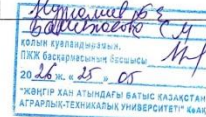 қолын куәландырамын.
ПЖЖ басқармасының басшысы
20 26 ж. «25» 05
"ЖӘҢГІР ХАН АТЫНДАҒЫ БАТЫС ҚАЗАҚСТАН
АГРАРЛЫҚ-ТЕХНИКАЛЫҚ УНИВЕРСИТЕТІ" КеАҚ